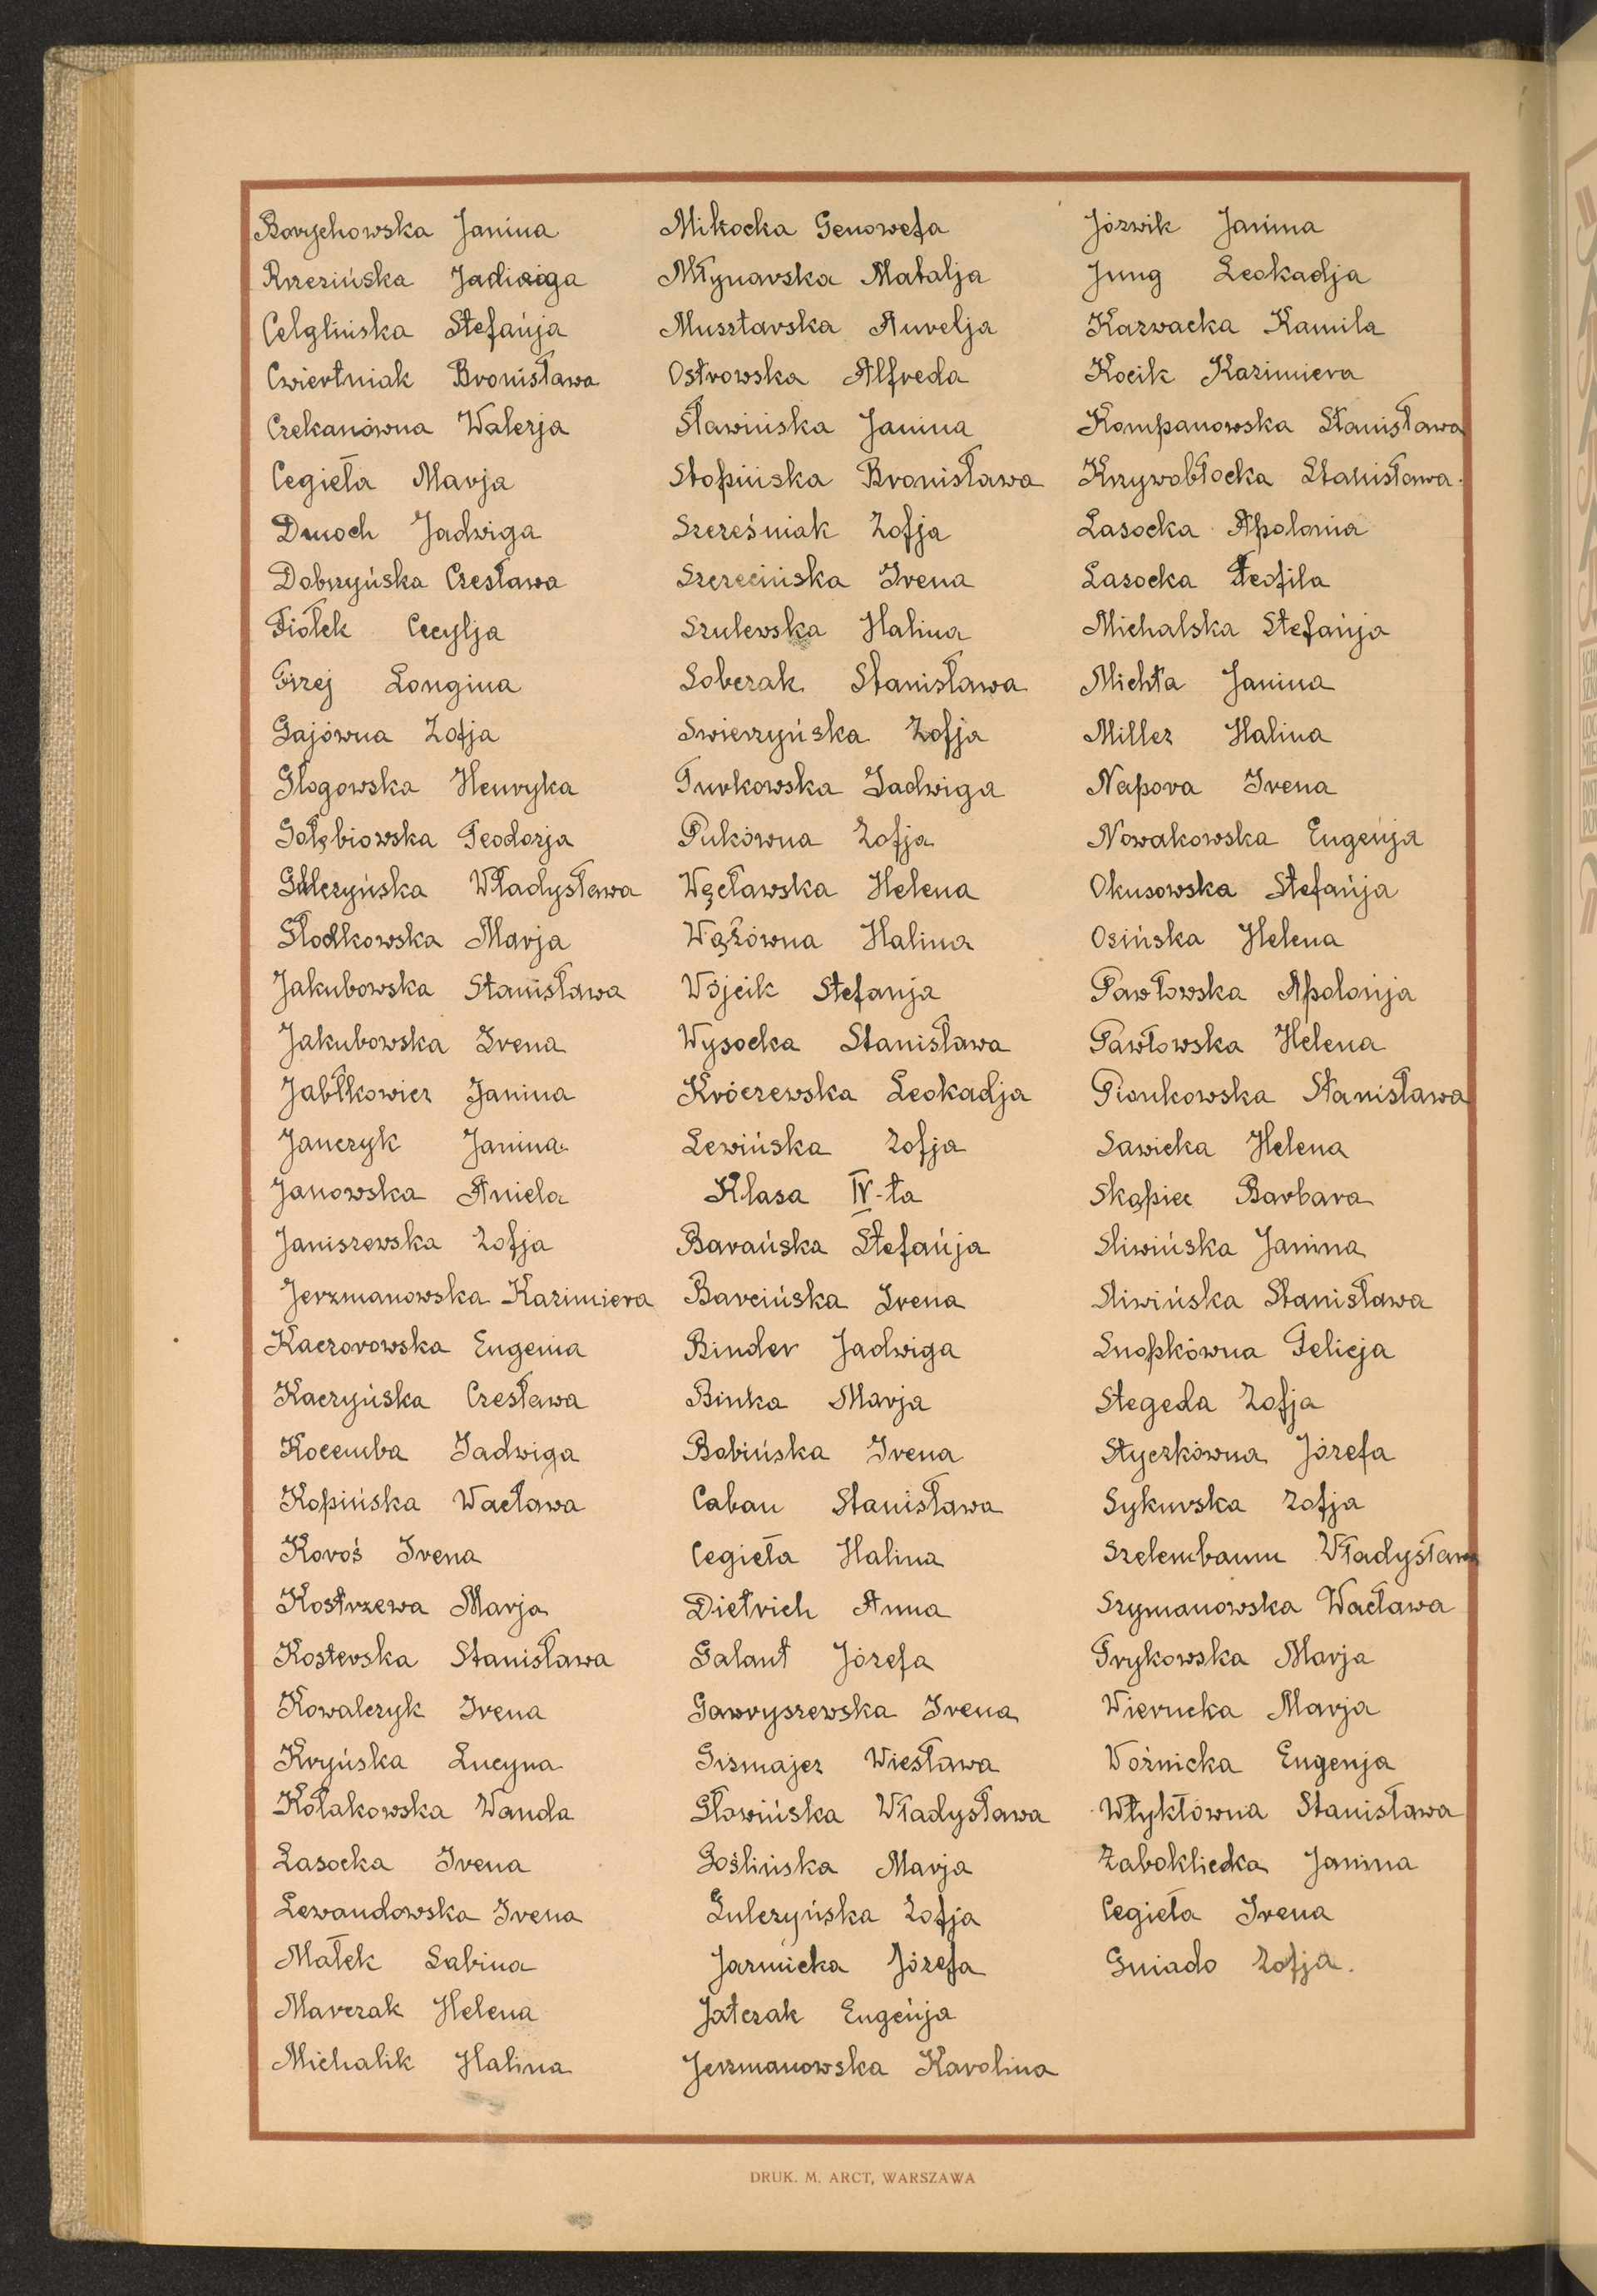 Borychowska Janina
Brzezińska Jadwiga
Celglińska Stefańja
Cwiertniak Bronisława
Czekanówna Walerja
Cegieła Marja
Dmoch Jadwiga
Dobrzyńska Czesława
Fiołek Cecylja
Girej Longina
Gajówna Zofja
Głogowska Henryka
Gołębiowska Teodorja
Gulczyńska Władysława
Głodkowska Marja
Jakubowska Stanisława
Jakubowska Irena
Jabłkowicz Janina
Janczyk Janina
Janowska Aniela
Janiszewska Zofja
Jerzmanowska Kazimiera
Kaczorowska Eugenia
Kaczyńska Czesława
Kocemba Jadwiga
Kopińska Wacława
Koroś Irena
Kostrzewa Marja
Kosterska Stanisława
Kowalczyk Irena
Kryńska Lucyna
Kołakowska Wanda
Lasocka Irena
Lewandowska Irena
Małek Sabina
Marczak Helena
Michalik Halina
Mikocka Genowefa
Młynarska Natalja
Musztarska Aurelja
Ostrowska Alfreda
Sławińska Janina
Stopińska Bronisława
Szcześniak Zofja
Szczecińska Irena
Szulewska Halina
Sobczak Stanisława
Swierzyńska Zofja
Turkowska Jadwiga
Pukówna Zofja
Węcławska Helena
Wążówna Halina
Wójcik Stefanja
Wysocka Stanisława
Króczewska Leokadja
Lewińska Zofja
Klasa IV-ta
Barańska Stefańja
Barcińska Irena
Binder Jadwiga
Binka Marja
Bobińska Irena
Caban Stanisława
Cegieła Halina
Dietrich Anna
Galant Józefa
Gawryszewska Irena
Gizmajer Wiesława
Głowińska Władysława
Goślińska Marja
Gulczyńska Zofja
Jarmicka Józefa
Jatczak Eugeńja
Jerzmanowska Karolina
Józwik Janina
Jung Leokadja
Karwacka Kamila
Kocik Kazimiera
Kompanowska Stanisława
Krzywobłocka Stanisława.
Lasocka Apolonia
Lasocka Teofila
Michalska Stefańja
Michta Janina
Miller Halina
Napora Irena
Nowakowska Eugeńja
Okusowska Stefańja
Osińska Helena
Pawłowska Apolonja
Pawłowska Helena
Pionkowska Stanisława
Sawicka Helena
Skąpiec Barbara
Sliwińska Janina
Sliwińska Stanisława
Snopkówna Felicja
Stegeda Zofja
Styczkówna Józefa
Sykurska Zofja
Szelembaum Władysława
Szymanowska Wacława
Trykowska Marja
Wierncka Marja
Woźnicka Eugenja
Wtykłówna Stanisława
Zaboklicka Janina
Cegieła Irena
Gniado Zofja.
DRUK. M. ARCT, WARSZAWA